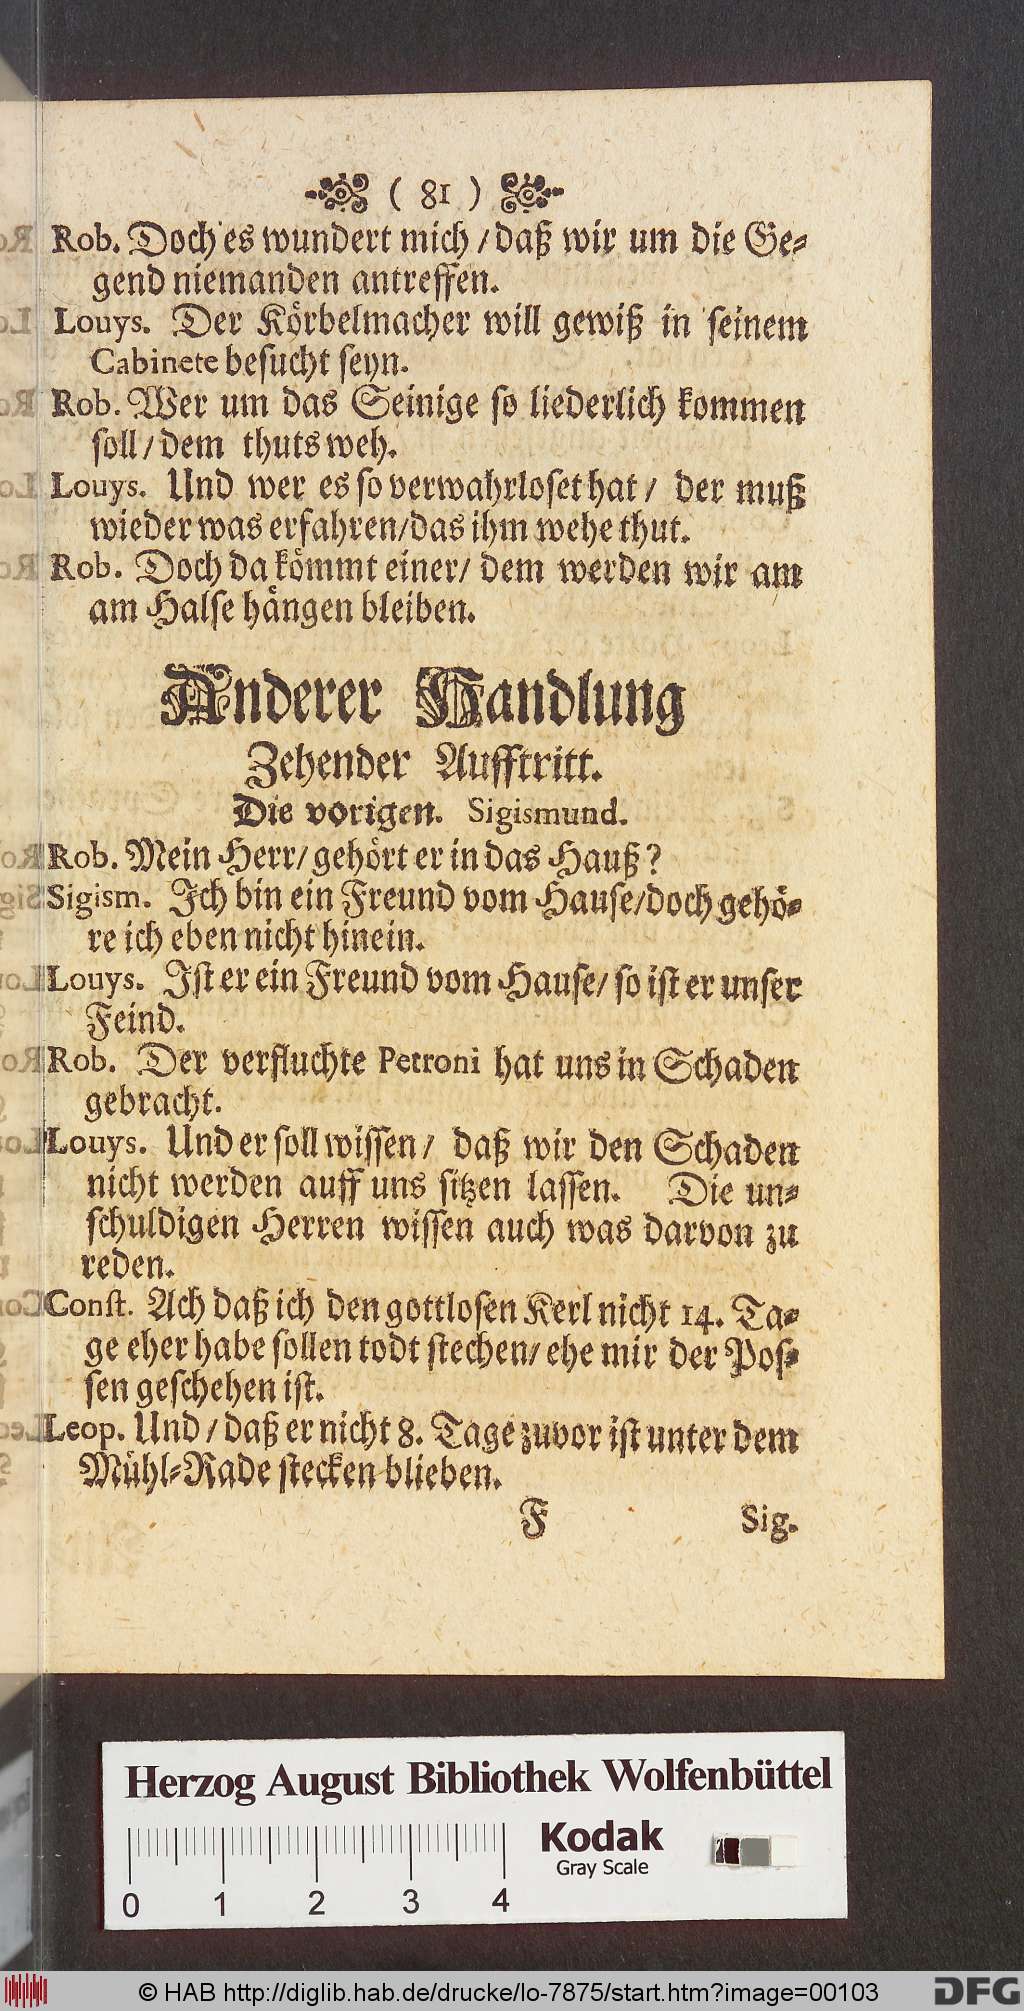 ( 81 )
Rob. Doch es wundert mich / daß wir um die Ge-
gend niemanden antreffen.
Louys. Der Körbelmacher will gewiß in seinem
Cabinete besucht seyn.
Rob. Wer um das Seinige so liederlich kommen
soll / dem thuts weh.
Louys. Und wer es so verwahrloset hat / der muß
wieder was erfahren / das ihm wehe thut.
Rob. Doch da kömmt einer / dem werden wir am
am Halse hängen bleiben.
Anderer Handlung
Zehender Aufftritt.
Die vorigen. Sigismund.
Rob. Mein Herr / gehört er in das Hauß?
Sigism. Ich bin ein Freund vom Hause / doch gehö-
re ich eben nicht hinein.
Louys. Ist er ein Freund vom Hause / so ist er unser
Feind.
Rob. Der verfluchte Petroni hat uns in Schaden
gebracht.
Louys. Und er soll wissen / daß wir den Schaden
nicht werden auff uns sitzen lassen. Die un-
schuldigen Herren wissen auch was darvon zu
reden.
Const. Ach daß ich den gottlosen Kerl nicht 14. Ta-
ge eher habe sollen todt stechen / ehe mir der Pos-
sen geschehen ist.
Leop. Und / daß er nicht 8. Tage zuvor ist unter dem
Mühl-Rade stecken blieben.
F Sig.
Herzog August Bibliothek Wolfenbüttel
Kodak
Gray Scale
0 1 2 3 4
© HAB http://diglib.hab.de/drucke/lo-7875/start.htm?image=00103
DFG